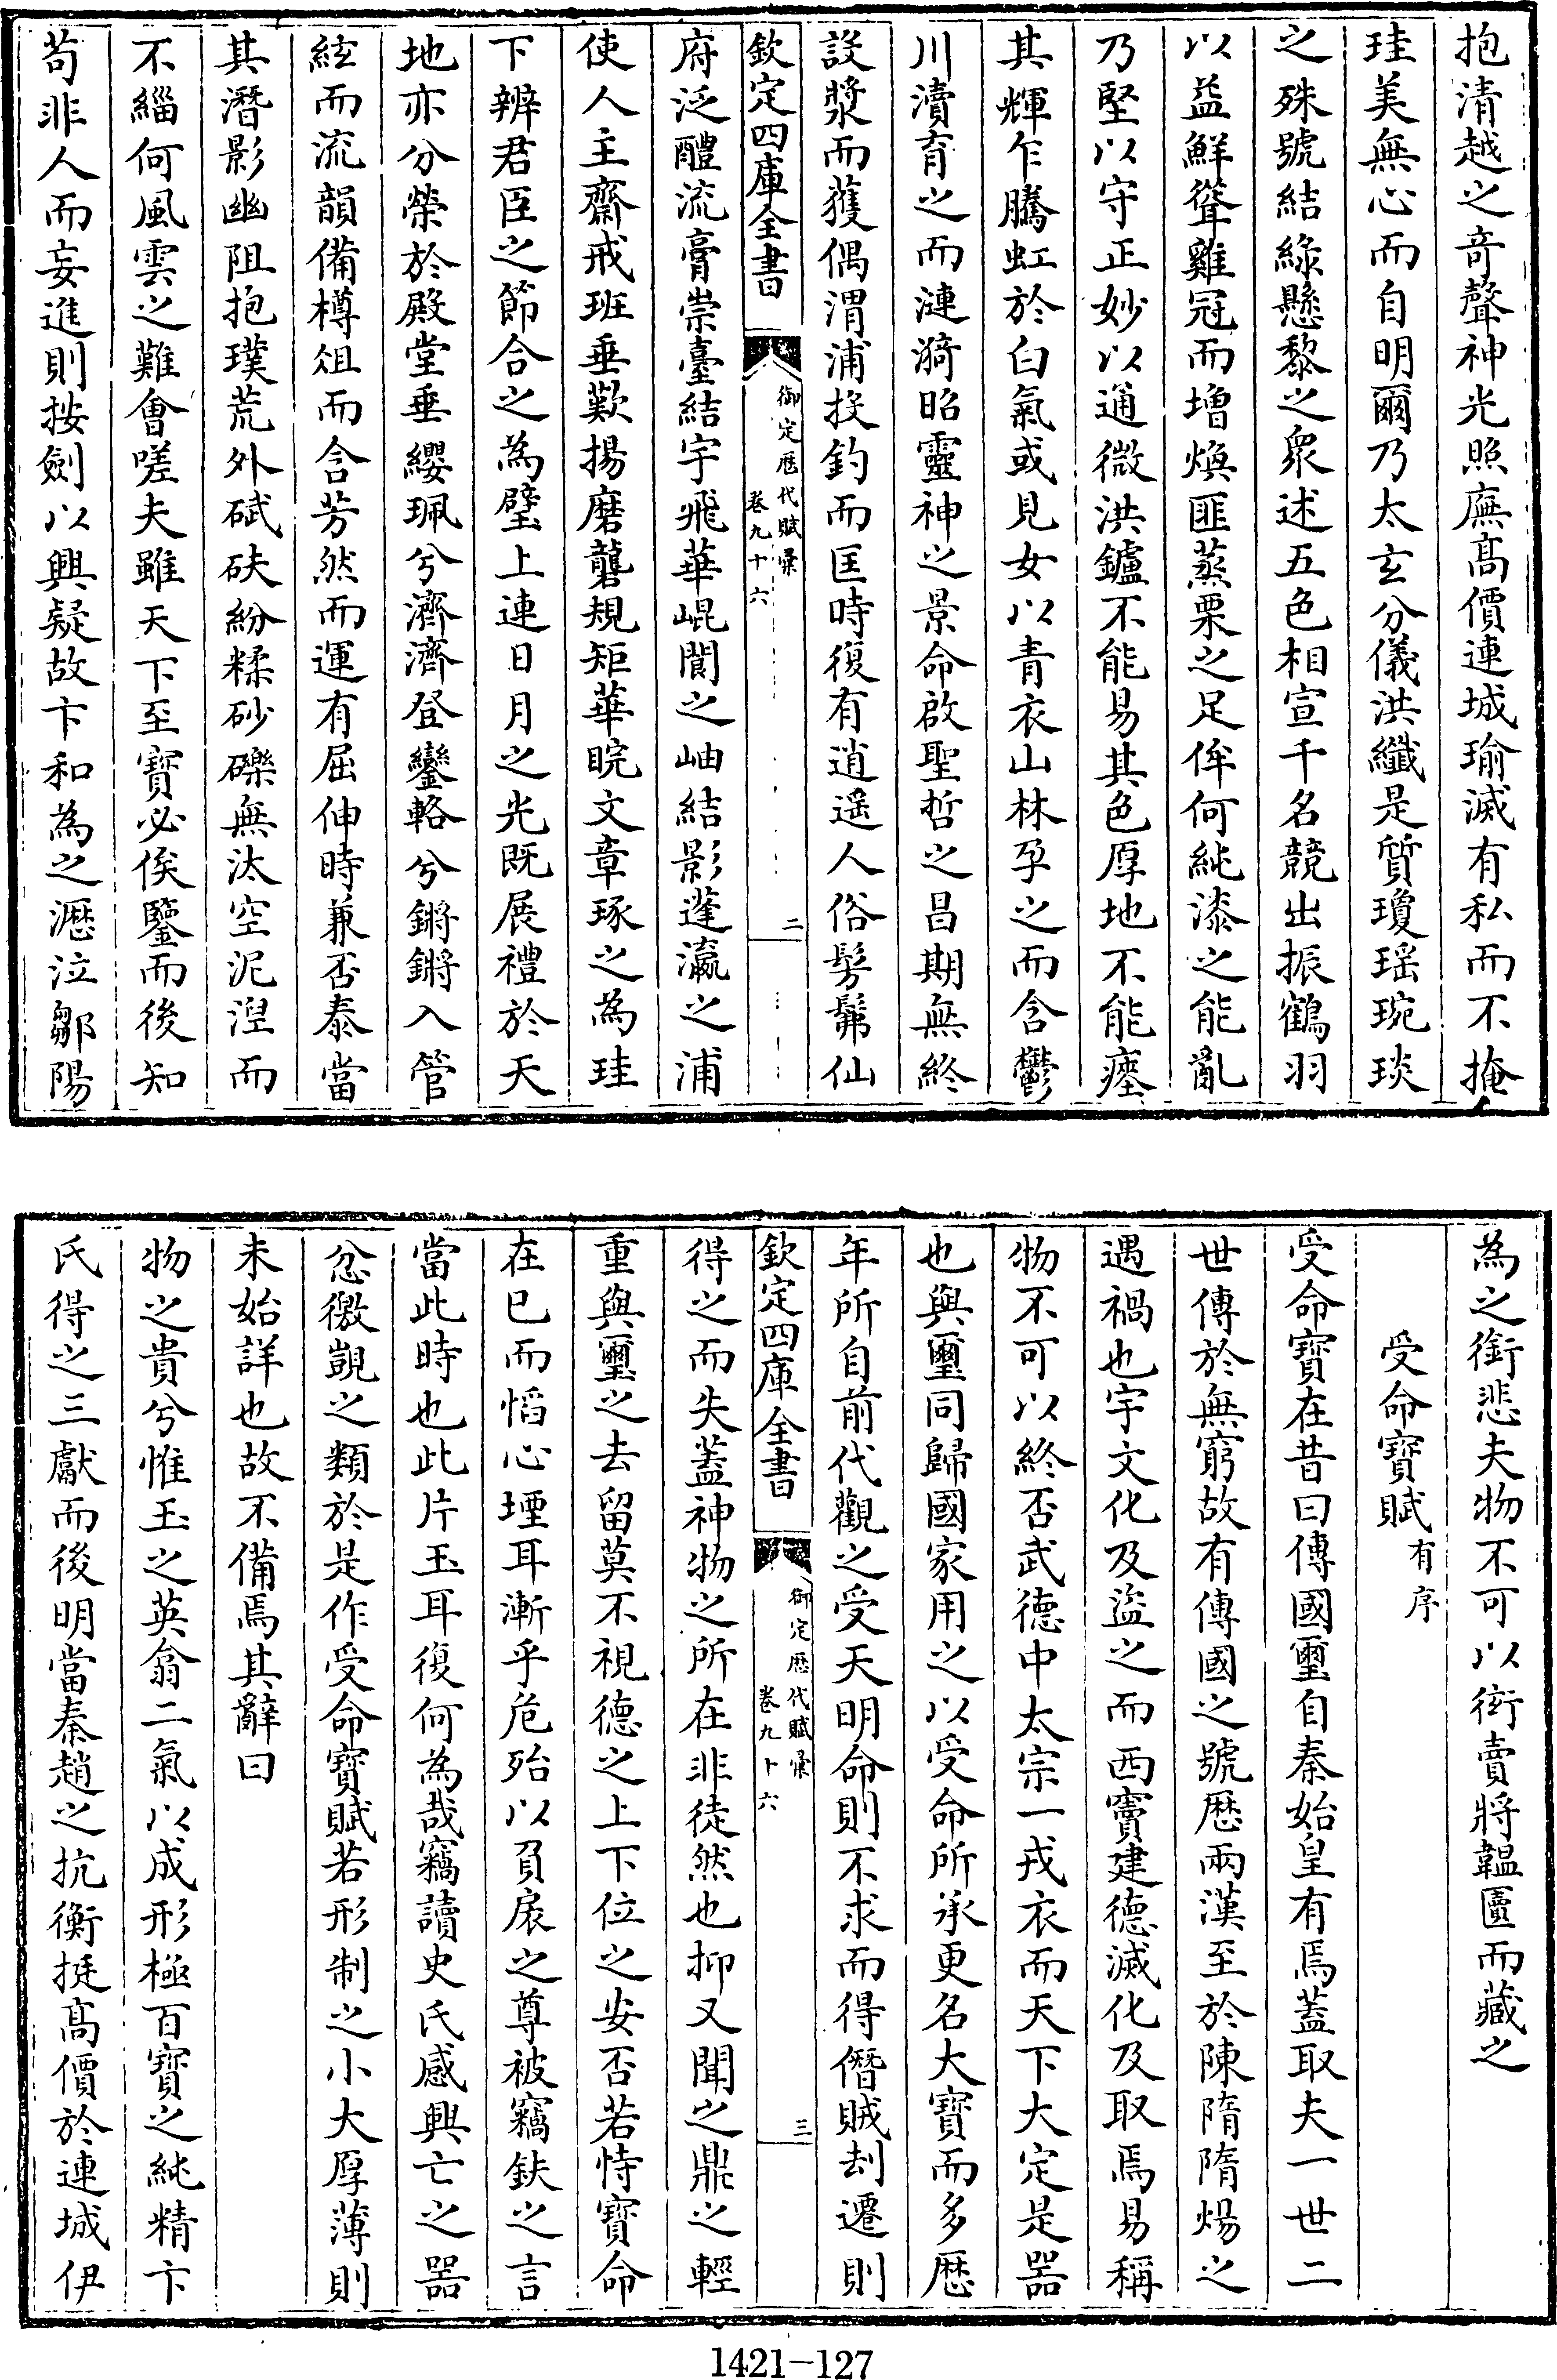 抱清越之竒聲神光照廡髙價連城瑜滅有私而不掩
珪美無心而自明爾乃太玄分儀洪纎是質瓊瑶琬琰
之殊號結緑懸黎之衆述五色相宣千名競出振鶴羽
以益鮮聳雞冠而增煥匪蒸栗之足侔何純漆之能亂
乃堅以守正妙以通微洪鑪不能易其色厚地不能瘞
其輝乍騰虹於白氣或見女以青衣山林孕之而含鬱
川瀆育之而漣漪昭靈神之景命啟聖哲之昌期無終
設漿而獲偶渭浦投釣而匡時復有逍遥人俗髣髴仙
欽定四庫全書
御定歴代賦彙
卷九十六
二
府泛醴流膏崇臺結宇飛華崐閬之岫結影蓬瀛之浦
使人主齋戒班垂歎揚磨礱規矩華睆文章琢之為珪
下辨君臣之節合之為璧上連日月之光既展禮於天
地亦分榮於殿堂垂纓珮兮濟濟登鑾輅兮鏘鏘入管
絃而流韻備樽俎而含芳然而運有屈伸時兼否泰當
其潛影幽阻抱璞荒外碔砆紛糅砂礫無汰空泥湼而
不緇何風雲之難會嗟夫雖天下至寶必俟鑒而後知
苟非人而妄進則按劍以興疑故卞和為之瀝泣鄒陽
為之銜悲夫物不可以衒賣將韞匵而藏之
受命寶賦有序
受命寶在昔曰傳國璽自秦始皇有焉蓋取夫一世二
世傳於無窮故有傳國之號歴兩漢至於陳隋隋煬之
遇禍也宇文化及盜之而西竇建德滅化及取焉易稱
物不可以終否武德中太宗一戎衣而天下大定是器
也與璽同歸國家用之以受命所承更名大寶而多歴
年所自前代觀之受天明命則不求而得僭賊刦遷則
欽定四庫全書
御定歴代賦彙
卷九十六
三
得之而失蓋神物之所在非徒然也抑又聞之鼎之輕
重與璽之去留莫不視德之上下位之安否若恃寶命
在已而慆心堙耳漸乎危殆以負扆之尊被竊鈇之言
當此時也此片玉耳復何為哉竊讀史氏感興亡之器
忿徼覬之類於是作受命寶賦若形制之小大厚薄則
未始詳也故不備焉其辭曰
物之貴兮惟玉之英翕二氣以成形極百寶之純精卞
氏得之三獻而後明當秦趙之抗衡挺髙價於連城伊
1421-127